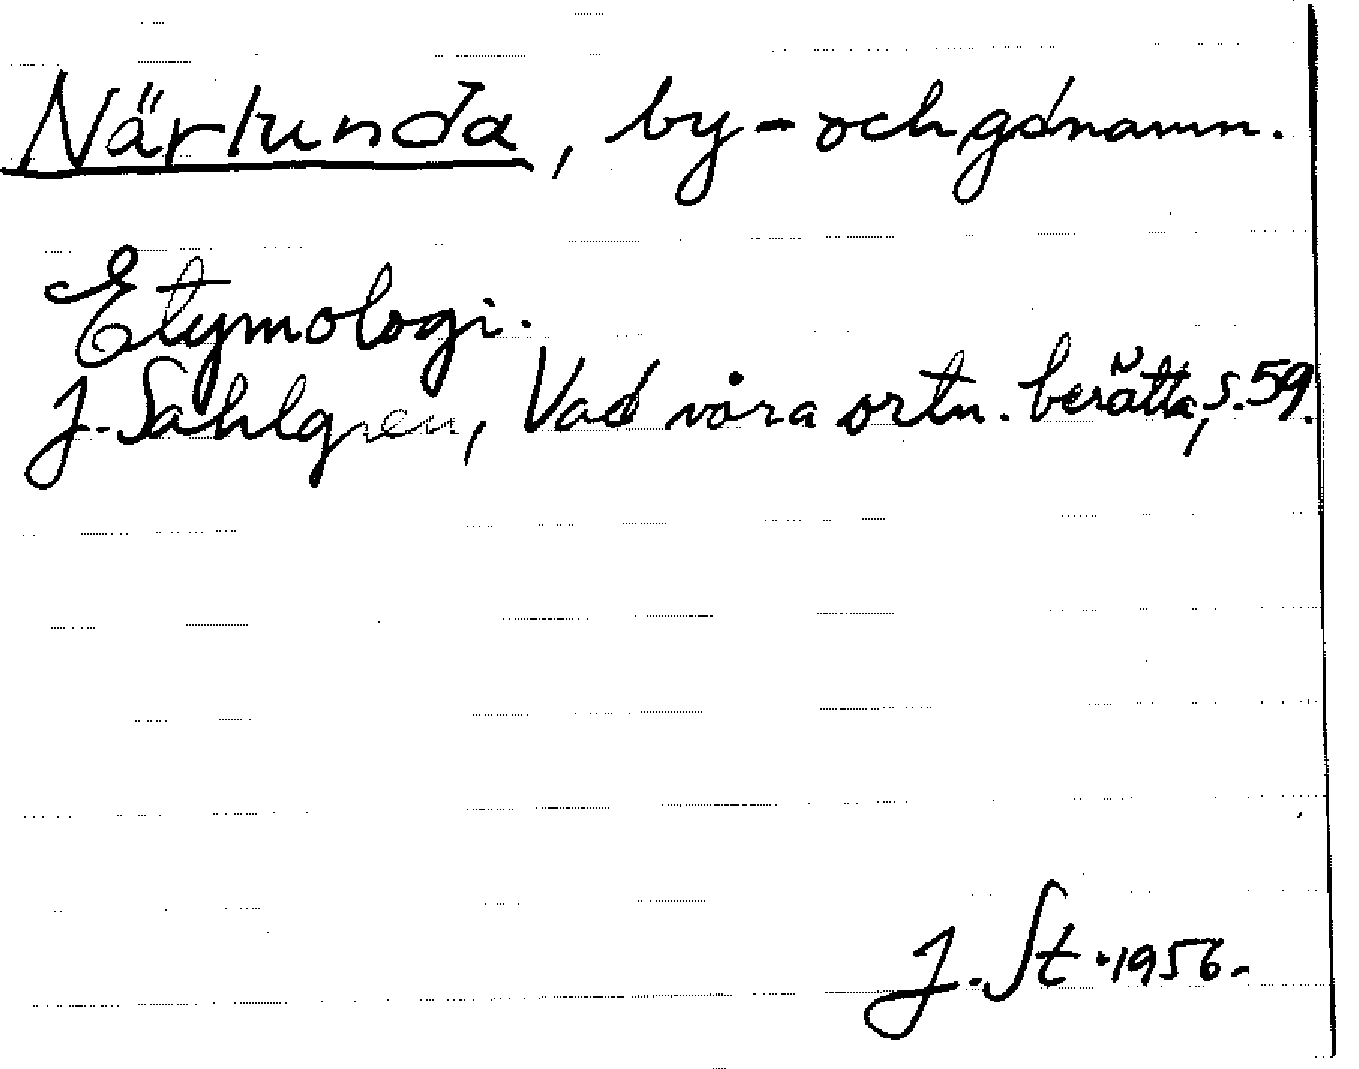 Närlunda, by- och gdnamn.
Etymologi.
J. Sahlgren, Vad våra ortn. berätta, s. 59.
J. St. 1956.